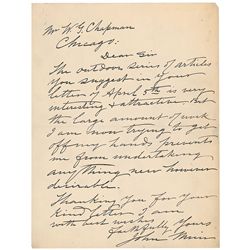 Mr W. G. Chapman
Chicago.
Dear Sir
The outdoor series of articles
you suggest in your
letter of April 5th is very
interesting & attractive. But
the large amount of work
I am now trying to get
off my hands prevents
me from undertaking
anything new however
desirable.
Thanking you for your
kind letter I am
with best wishes
Faithfully Yours
John Muir